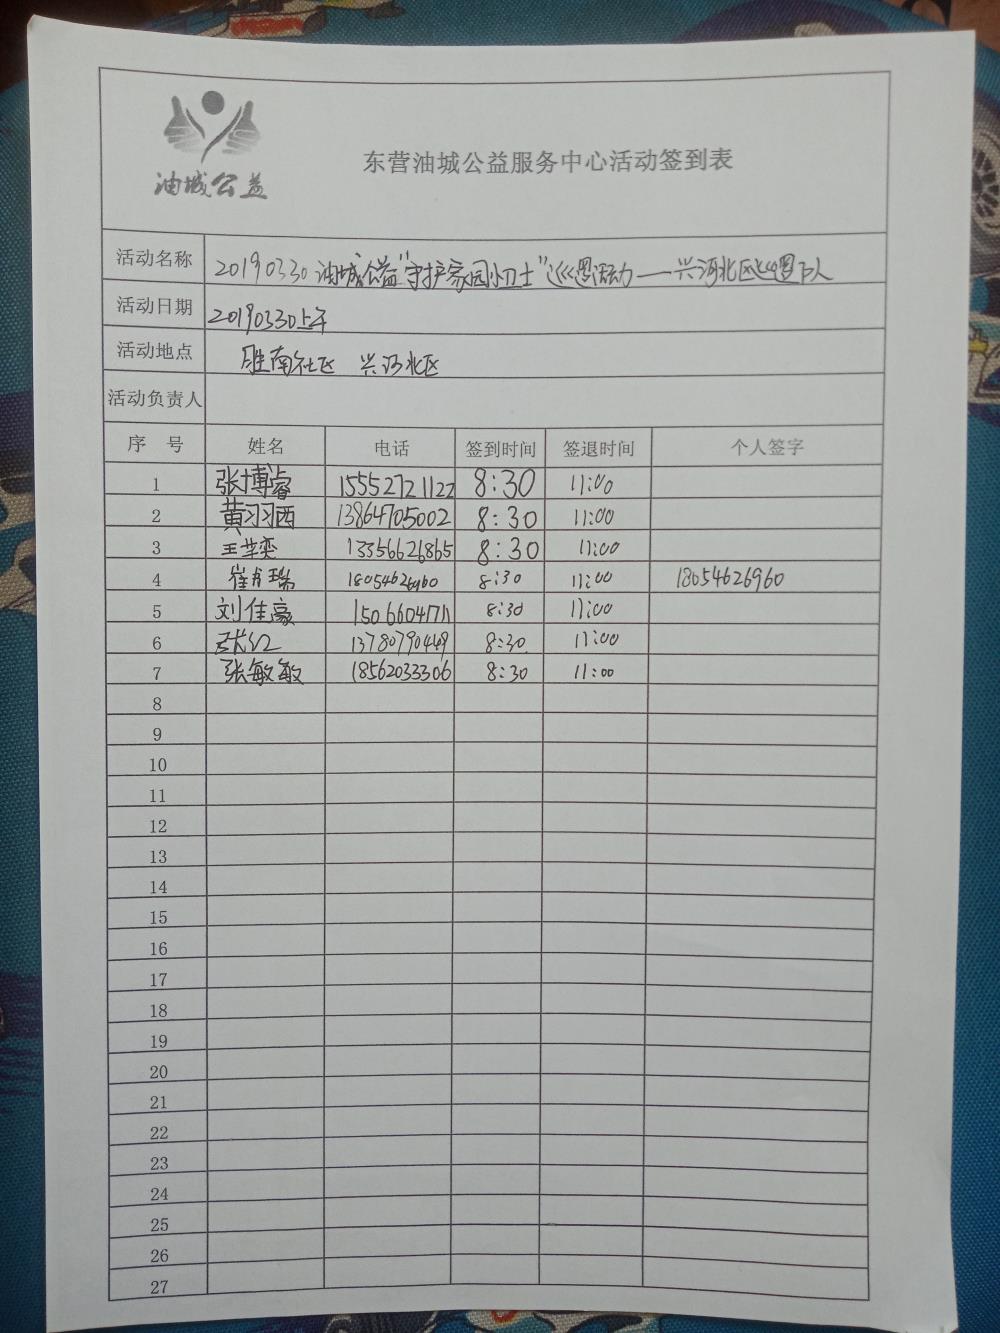 油城公益
东营油城公益服务中心活动签到表
活动名称 20190330油城公益"守护家园小卫士"巡逻活动——兴河北区巡逻队
活动日期 20190330上午
活动地点 胜南社区 兴河北区
活动负责人
序 号 姓名 电话 签到时间 签退时间 个人签字
1 张博睿 15552721122 8:30 11:00
2 黄习习西 13864705002 8:30 11:00
3 王莘奕 13356626865 8:30 11:00
4 崔肖瑞 18054626960 8:30 11:00 18054626960
5 刘佳豪 15066041711 8:30 11:00
6 张红 13780790449 8:30 11:00
7 张敏敏 18562033306 8:30 11:00
8
9
10
11
12
13
14
15
16
17
18
19
20
21
22
23
24
25
26
27